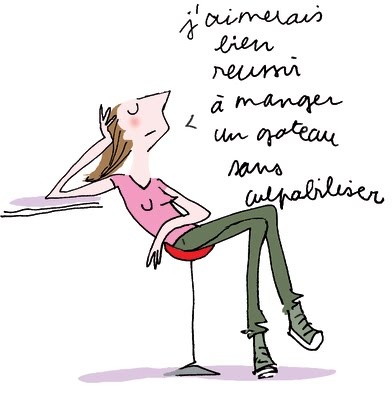 j'aimerais
bien
reussir
à manger
un gateau
sans
culpabiliser